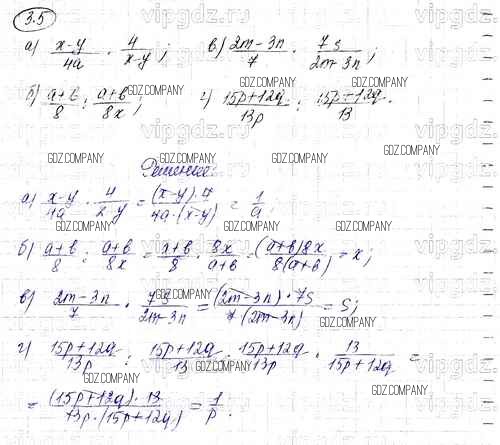 3.5
а) (x-y)/4a · 4/(x-y); в) (2m-3n)/7 · 7s/(2m-3n);
б) (a+b)/8 : (a+b)/8x; г) (15p+12q)/13p : (15p+12q)/13.
Решение:
а) (x-y)/4a · 4/(x-y) = (x-y)·4/4a·(x-y) = 1/a.
б) (a+b)/8 : (a+b)/8x = (a+b)/8 · 8x/(a+b) = (a+b)8x/8(a+b) = x;
в) (2m-3n)/7 · 7s/(2m-3n) = (2m-3n)·7s/7(2m-3n) = s;
г) (15p+12q)/13p : (15p+12q)/13 = (15p+12q)/13p · 13/(15p+12q) =
= (15p+12q)·13/13p·(15p+12q) = 1/p.
vipgdz.ru
GDZ.COMPANY